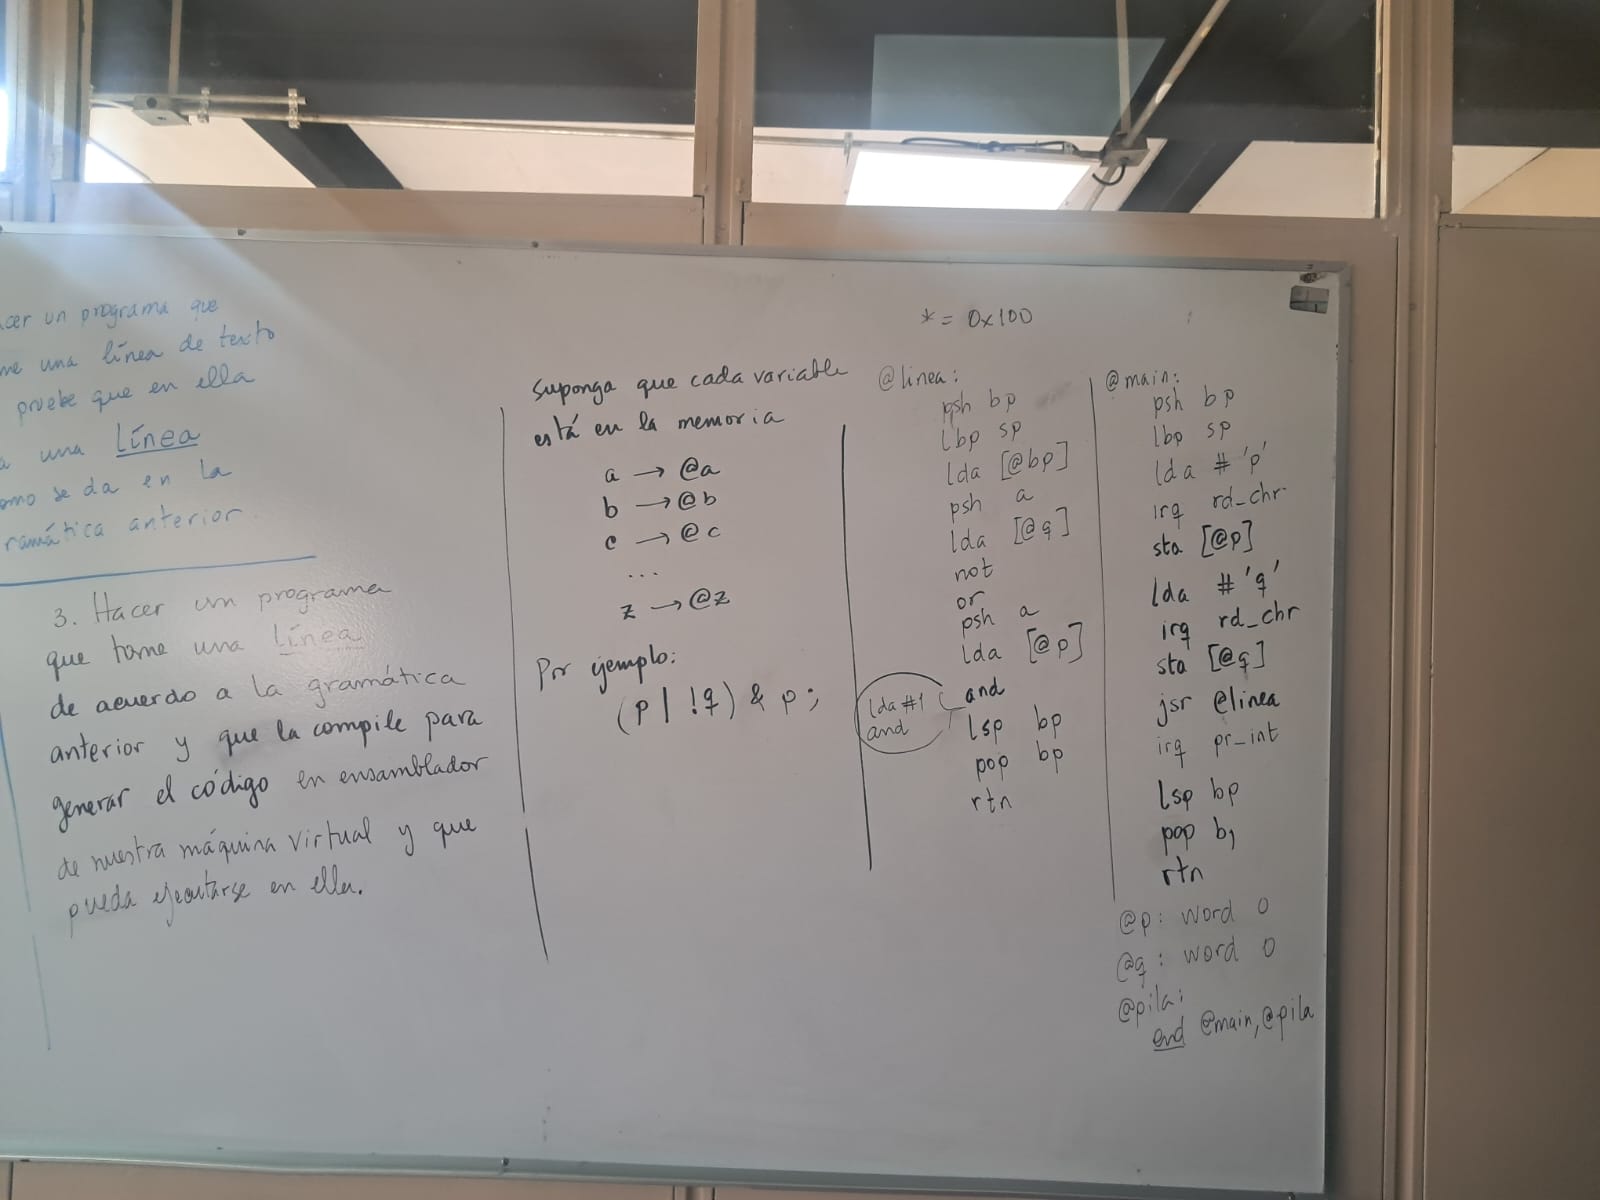 cer un programa que
me una línea de texto
pruebe que en ella
a una Línea
omo se da en la
ramática anterior.
3. Hacer un programa
que tome una línea
de acuerdo a la gramática
anterior y que la compile para
generar el código en ensamblador
de nuestra máquina virtual y que
pueda ejecutarse en ella.
Suponga que cada variable
está en la memoria
a → @a
b → @b
c → @c
...
z → @z
Por ejemplo:
(p | !q) & p ;
* = 0x100
@linea:
psh bp
lbp sp
lda [@bp]
psh a
lda [@q]
not
or
psh a
lda [@p]
and
lda #1
and
lsp bp
pop bp
rtn
@main:
psh bp
lbp sp
lda # 'p'
irq rd_chr
sta [@p]
lda # 'q'
irq rd_chr
sta [@q]
jsr @linea
irq pr_int
lsp bp
pop b,
rtn
@p: word 0
@q: word 0
@pila:
end @main, @pila